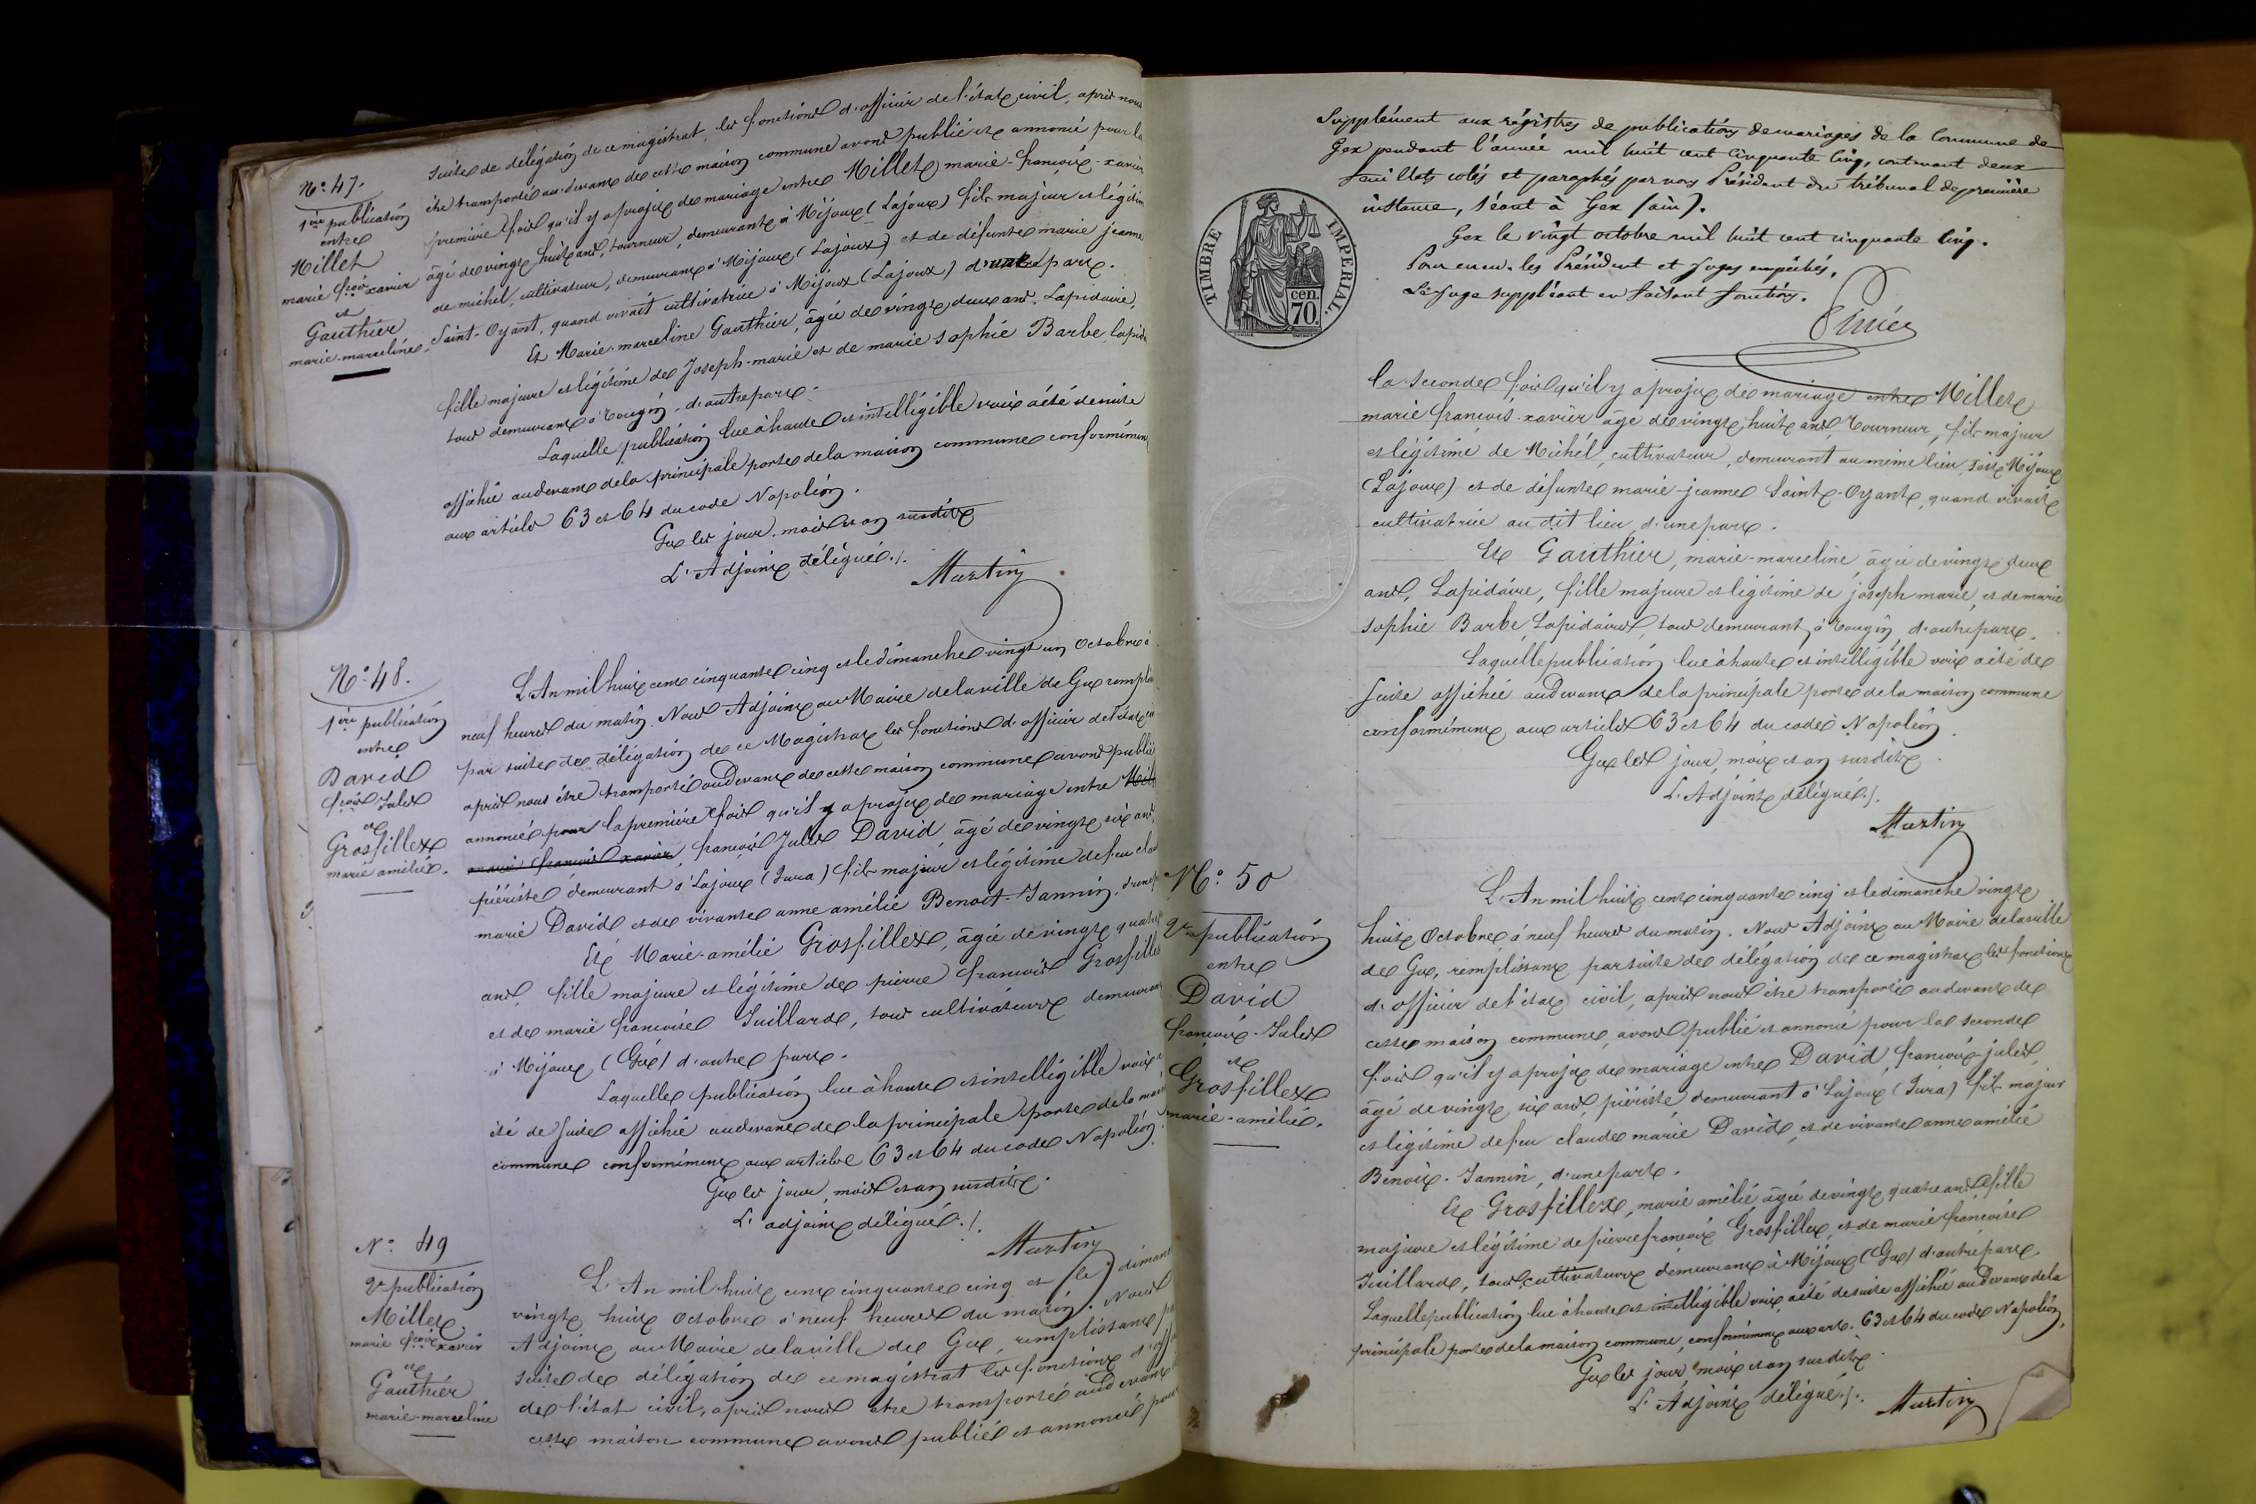 N.º 47.
1ère publication
entre
Millet
marie fçois xavier
et
Gauthier
marie-marceline.
suite de délégation de ce magistrat, les fonctions d'officier de l'état civil, après nous
être transporté au devant de cette maison commune avons publié et annoncé pour la
première fois qu'il y a projet de mariage entre Millet marie-françois-xavier
âgé de vingt huit ans, tourneur, demeurant à Mijoux (Lajoux) fils majeur et légitime
de michel, cultivateur, demeurant à Mijoux (Lajoux) et de défunte marie jeanne
Saint-Oyant, quand vivait cultivatrice à Mijoux (Lajoux) d'une part.
Et Marie-marceline Gauthier, âgée de vingt deux ans, Lapidaire,
fille majeure et légitime de Joseph-marie et de marie sophie Barbe, lapid
tous demeurant à Tougin, d'autre part.
Laquelle publication lue à haute et intelligible voix a été de suite
affichée au devant de la principale porte de la maison commune conformément
aux articles 63 et 64 du code Napoléon.
Gex les jour, mois et an susdits
L'Adjoint délégué./.
Martin
N.º 48.
1ère publication
entre
David
fçois Jules
et
Grosfillex
marie amélie.
L'An mil huit cent cinquante cinq et le dimanche vingt un Octobre à
neuf heures du matin. Nous Adjoint au Maire de la ville de Gex rempliss
par suite de délégation de ce Magistrat les fonctions d'officier de l'état ci
après nous être transporté au Devant de cette maison commune avons publié
annoncé pour la première fois qu'il y a projet de mariage entre Mill
marie françois xavier, françois Jules David, âgé de vingt six ans,
piériste demeurant à Lajoux (Jura) fils majeur et légitime de feu clau
marie David et de vivante anne amélie Benoit-Jannin, d'une p
Et Marie-amélie Grosfillex, âgée de vingt quatre
ans, fille majeure et légitime de pierre françois Grosfillex
et de marie françoise Juillard, tous cultivateurs demeurant
à Mijoux (Gex) d'autre part.
Laquelle publication lue à haute et intelligible voix a
été de suite affichée au devant de la principale porte de la mais
commune conformément aux articles 63 et 64 du code Napoléon.
Gex les jour, mois et an susdits.
L'adjoint délégué./.
Martin
N.º 49
2e publication
Millet,
marie fçois xavier
et
Gauthier
marie-marceline
L'An mil huit cent cinquante cinq et le dimanc
vingt huit Octobre à neuf heures du matin. Nous
Adjoint au Maire de la ville de Gex, remplissant pa
suite de délégation de ce magistrat les fonctions d'off
de l'état civil, après nous être transporté au Devant
cette maison commune avons publié et annoncé pour
Supplément aux régistres de publications de mariages de la Commune de
Gex pendant l'année mil huit cent cinquante cinq, contenant deux
feuillets cotés et paraphés par nous Président du tribunal de première
instance, séant à Gex (ain).
Gex le vingt octobre mil huit cent cinquante cinq.
Pour en eu. les Président et Juges empêchés,
Le Juge suppléant en faisant fonctions.
TIMBRE IMPÉRIAL.
70 cen.
la seconde fois qu'il y a projet de mariage entre Millet
marie françois-xavier âgé de vingt huit ans, Tourneur, fils majeur
et légitime de Michel, cultivateur, demeurant au même lieu, soit Mijoux
(Lajoux) et de défunte marie-jeanne Saint-Oyant, quand vivait
cultivatrice au dit lieu, d'une part.
Et Gauthier, marie-marceline, âgée de vingt deux
ans, Lapidaire, fille majeure et légitime de joseph marie, et de marie
sophie Barbe, Lapidaires, tous demeurant à Tougin, d'autre part.
Laquelle publication lue à haute et intelligible voix a été de
suite affichée au Devant de la principale porte de la maison commune
conformément aux articles 63 et 64 du code Napoléon.
Gex les jour, mois et an susdits.
L'Adjoint délégué./.
Martin
N.º 50
2e publication
entre
David
françois-Jules
et
Grosfillex
marie-amélie.
L'An mil huit cent cinquante cinq et le dimanche vingt
huit Octobre, à neuf heures du matin. Nous Adjoint au Maire de la ville
de Gex, remplissant par suite de délégation de ce magistrat les fonctions
d'officier de l'état civil, après nous être transporté au devant de
cette maison commune, avons publié et annoncé pour la seconde
fois qu'il y a projet de mariage entre David, françois-jules
âgé de vingt six ans, piériste demeurant à Lajoux (Jura) fils majeur
et légitime de feu claude marie David, et de vivante anne amélie
Benoit-Jannin, d'une part.
Et Grosfillex, marie amélie âgée de vingt quatre ans, fille
majeure et légitime de pierre françois Grosfillex, et de marie françoise
Juillard, tous cultivateurs demeurant à Mijoux (Gex) d'autre part.
Laquelle publication lue à haute et intelligible voix, a été de suite affichée au Devant de la
principale porte de la maison commune, conformément aux art. 63 et 64 du code Napoléon.
Gex les jour, mois et an susdits.
L'Adjoint délégué./.
Martin